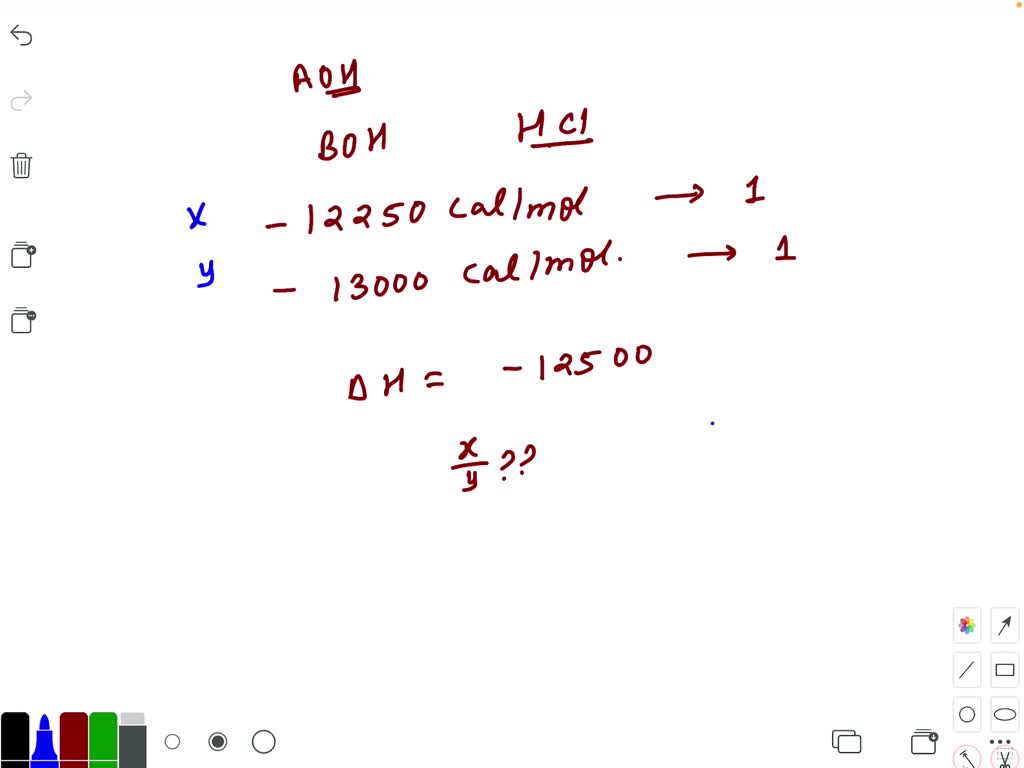 AOH
BOH HCl
x - 12250 cal/mol → 1
y - 13000 cal/mol. → 1
ΔH = -12500
x/y ??